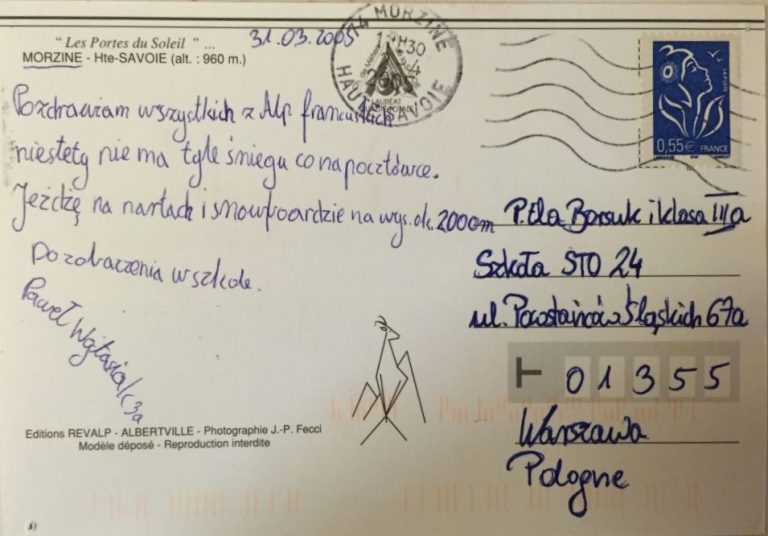 " Les Portes du Soleil " ...
MORZINE - Hte-SAVOIE (alt. : 960 m.)
31.03.2005
74 MORZINE
HAUTE SAVOIE
LAURÉAT
0,55€ FRANCE
LA POSTE
Pozdrawiam wszystkich z Alp francuskich
niestety nie ma tyle śniegu co na pocztówce.
Jeżdżę na nartach i snowboardzie na wys. ok. 2000m
Do zobaczenia w szkole.
Paweł
3a
P. Ela Borsuk i klasa IIIa
Szkoła STO 24
ul. Powstańców Śląskich 67a
01355
Warszawa
Pologne
Editions REVALP - ALBERTVILLE - Photographie J.-P. Fecci
Modèle déposé - Reproduction interdite